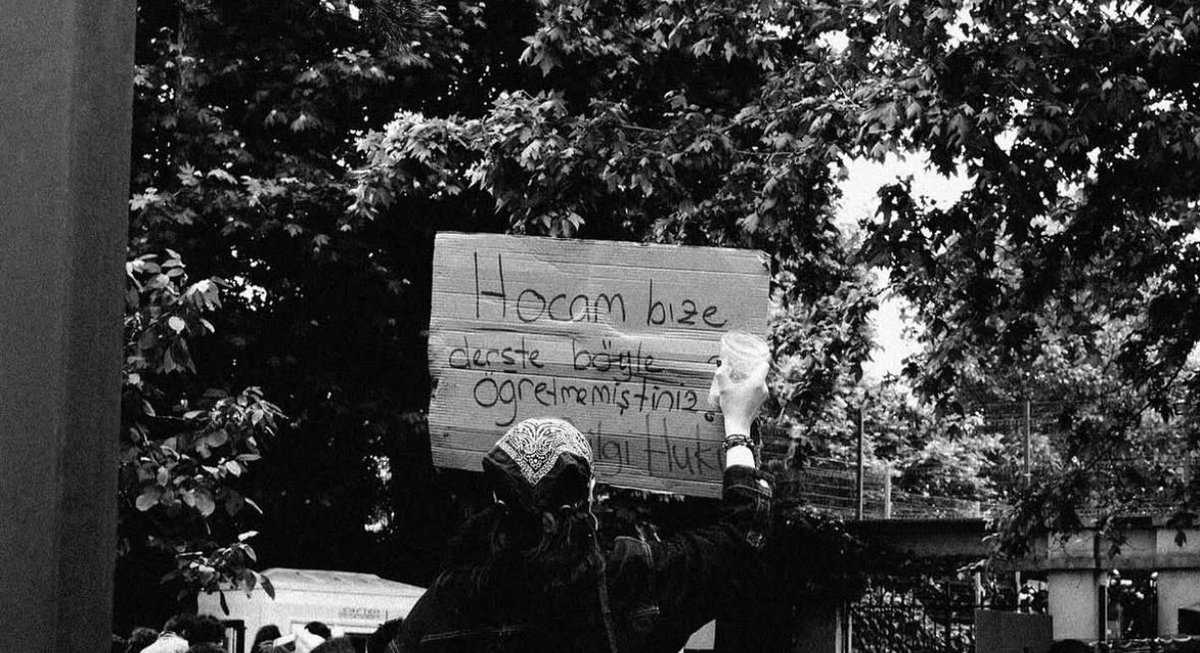 Hocam bize
derste böyle
öğretmemiştiniz